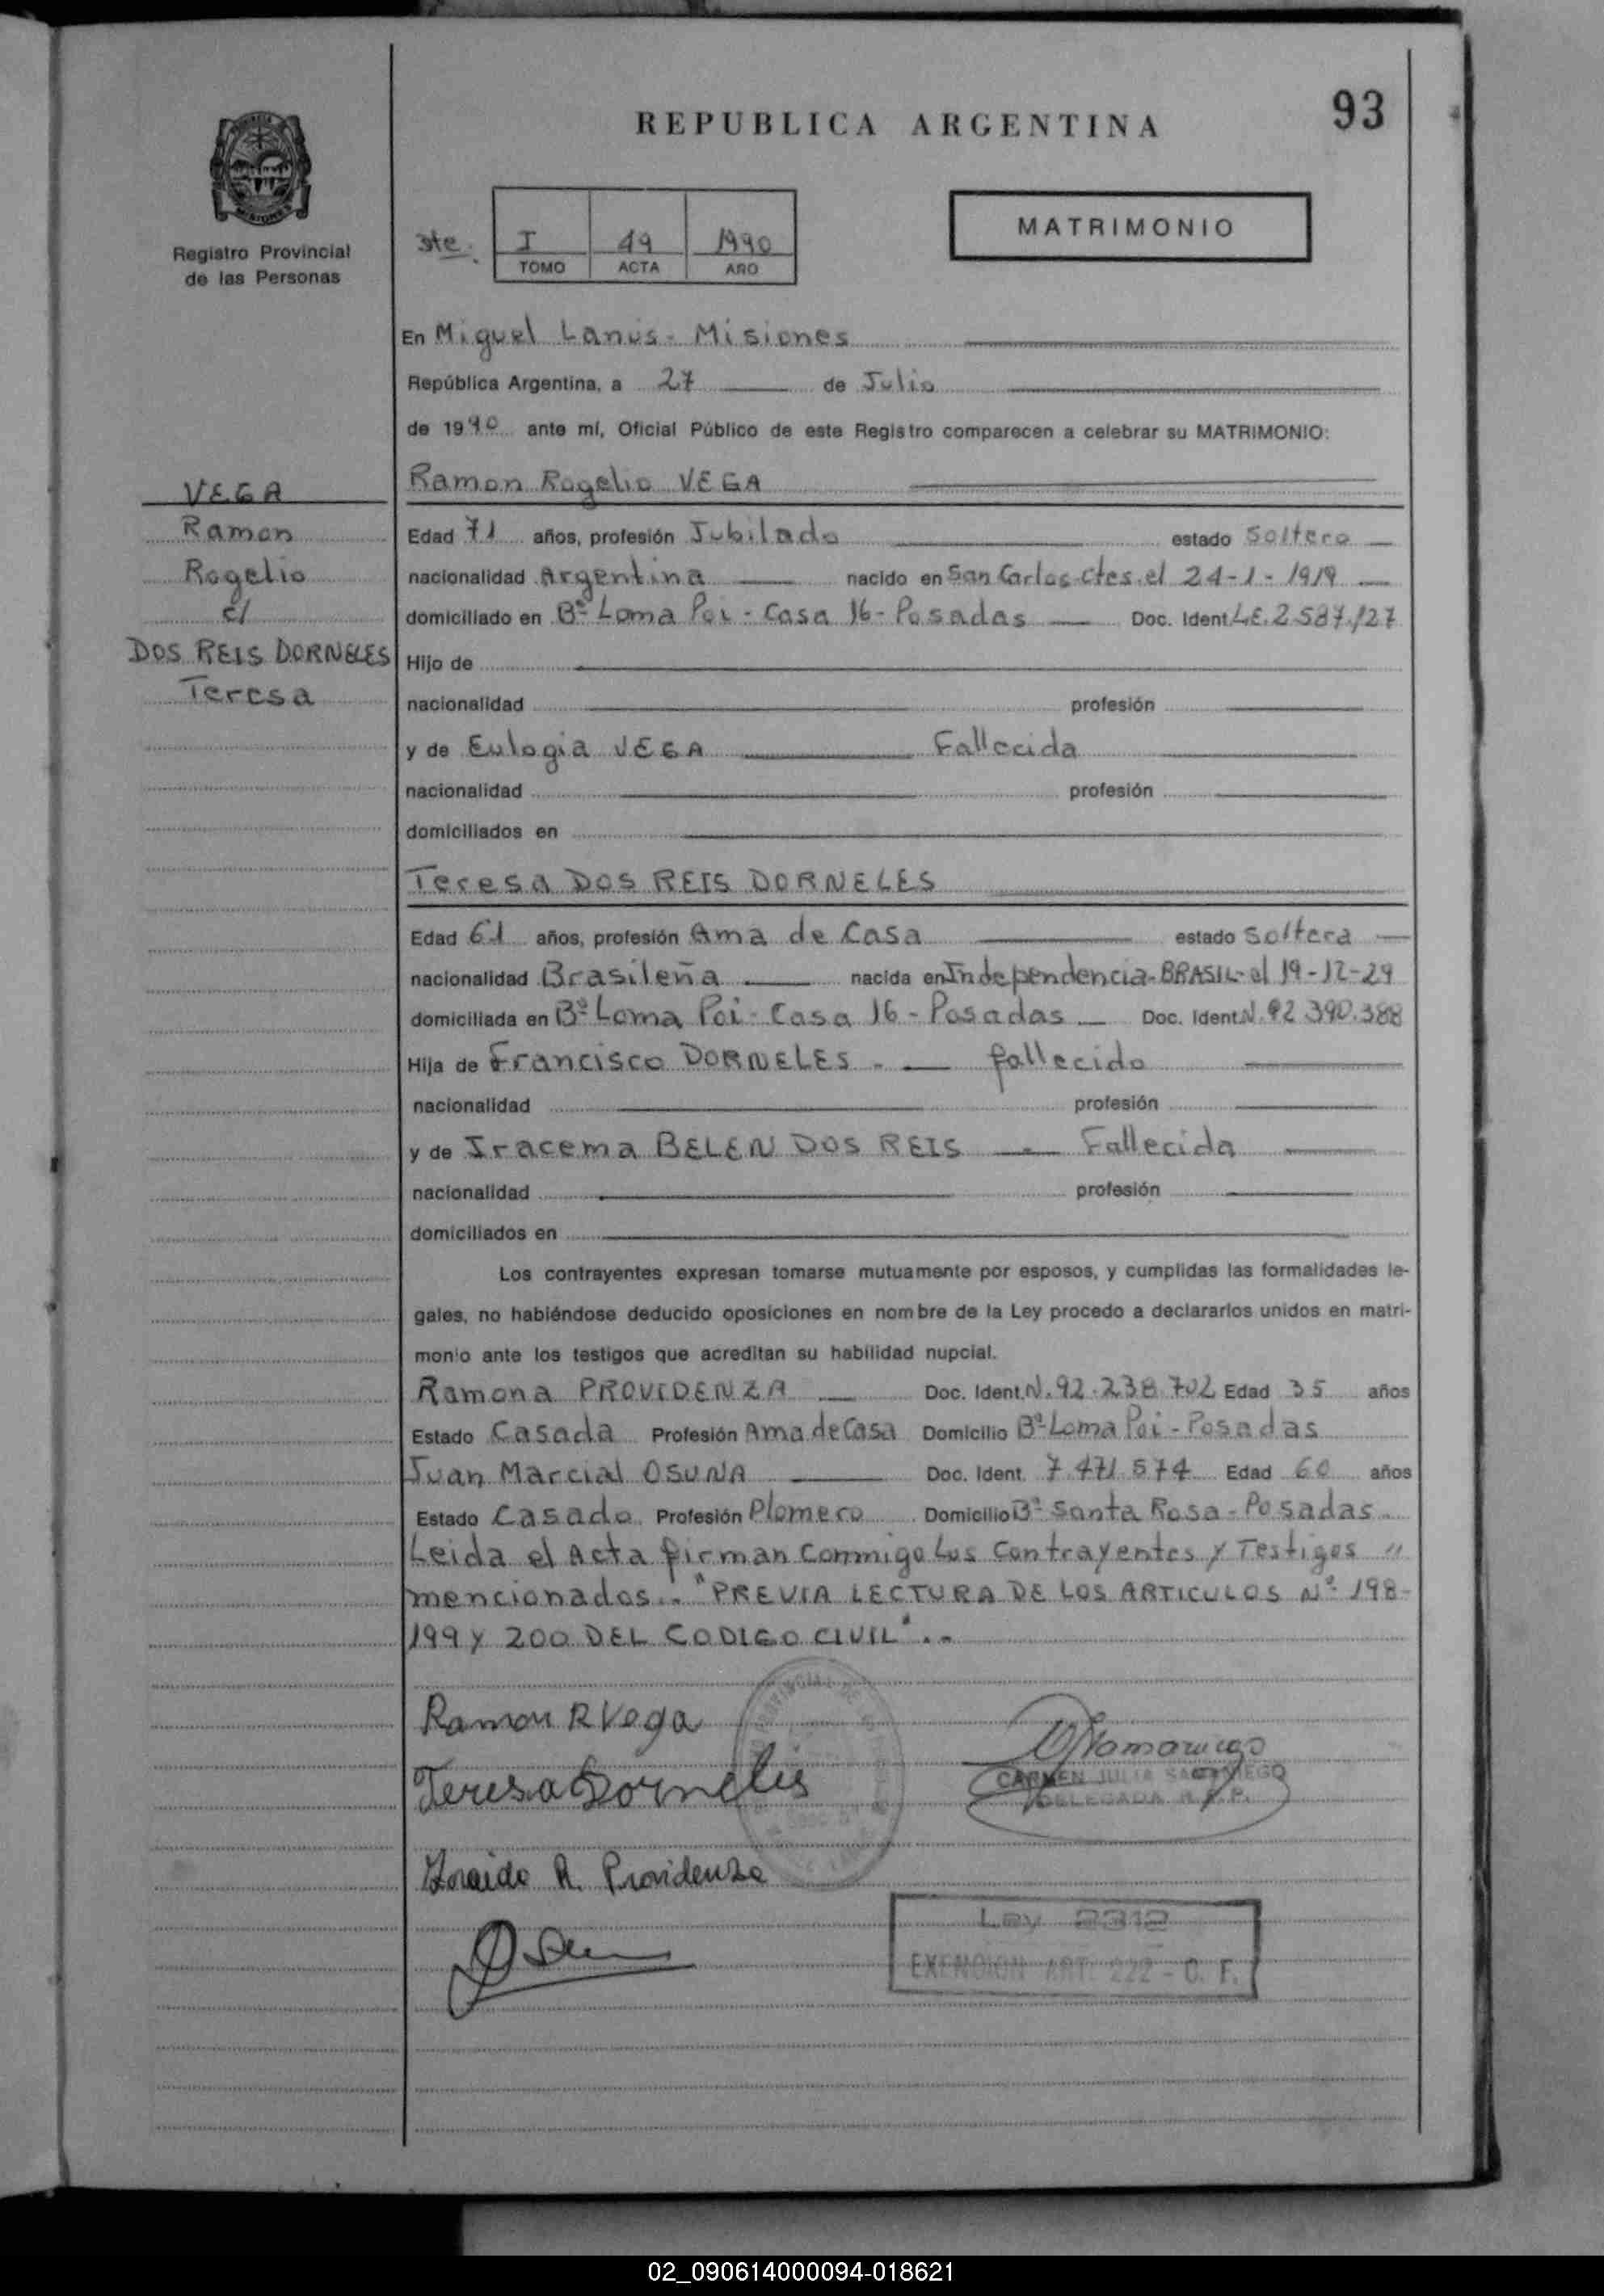 93
REPUBLICA ARGENTINA
MATRIMONIO
Registro Provincial
de las Personas
3te. I 49 1990
TOMO ACTA AÑO
En Miguel Lanús - Misiones
República Argentina, a 27 de Julio
de 1990 ante mí, Oficial Público de este Registro comparecen a celebrar su MATRIMONIO:
VEGA
Ramon
Rogelio
c/
DOS REIS DORNELES
Teresa
Ramon Rogelio VEGA
Edad 71 años, profesión Jubilado estado Soltero
nacionalidad Argentina nacido en San Carlos-Ctes. el 24-1-1919
domiciliado en Bº Loma Poi - Casa 16 - Posadas Doc. Ident L.E. 2.587.127
Hijo de
nacionalidad profesión
y de Eulogia VEGA Fallecida
nacionalidad profesión
domiciliados en
Teresa DOS REIS DORNELES
Edad 61 años, profesión Ama de Casa estado Soltera
nacionalidad Brasileña nacida en Independencia-BRASIL-el 19-12-29
domiciliada en Bº Loma Poi - Casa 16 - Posadas Doc. Ident. N. 92.390.388
Hija de Francisco DORNELES - fallecido
nacionalidad profesión
y de Iracema BELEN DOS REIS - Fallecida
nacionalidad profesión
domiciliados en
Los contrayentes expresan tomarse mutuamente por esposos, y cumplidas las formalidades le-
gales, no habiéndose deducido oposiciones en nombre de la Ley procedo a declararlos unidos en matri-
monio ante los testigos que acreditan su habilidad nupcial.
Ramona PROVIDENZA Doc. Ident. N. 92.238.702 Edad 35 años
Estado Casada Profesión Ama de Casa Domicilio Bº Loma Poi - Posadas
Juan Marcial OSUNA Doc. Ident. 7.471.574 Edad 60 años
Estado Casado Profesión Plomero Domicilio Bº Santa Rosa - Posadas.
Leida el Acta firman Conmigo Los Contrayentes y Testigos "
mencionados.- "PREVIA LECTURA DE LOS ARTICULOS Nº 198-
199 y 200 DEL CODIGO CIVIL".-
Ramon R Vega
Teresa Dornelis
CARMEN JULIA
DELEGADA R.P.P.
R. Providenza
Ley 2312
EXENCION ART. 222 - C. F.
02_090614000094-018621